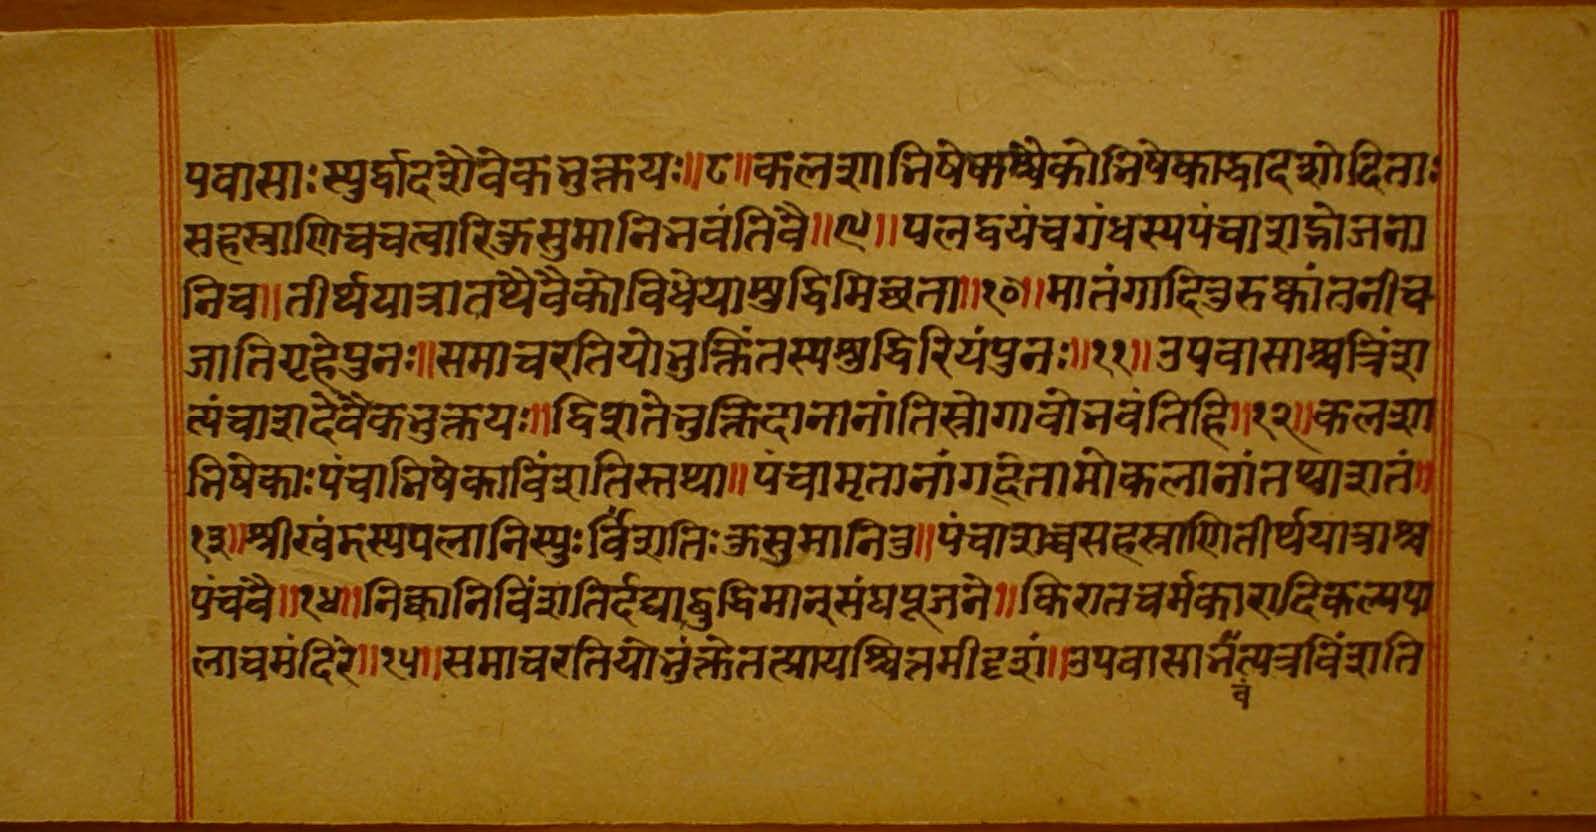 पवासाः स्युर्द्वादशैवेकभुक्तयः॥८॥कलशाभिषेकाश्चैकोभिषेकाद्वादशोदिताः
सहस्त्राणिचचत्वारिकुसुमानिभवंतिवै॥९॥पलद्वयंचगंधस्यपंचाशद्भोजना
निच॥तीर्थयात्रातथैवैकोविधेयाशुद्धिमिच्छता॥१०॥मातंगादितुरुष्कांतनीच
जातिगृहेपुनः॥समाचरतियोभुक्तिंतस्यशुद्धिरियंपुनः॥११॥उपवासाश्चत्रिंश
त्पंचाशदेवैकभुक्तयः॥द्विशतेभुक्तिदानानांतिस्रोगावोभवंतिहि॥१२॥कलशा
भिषेकाःपंचाभिषेकाविंशतिस्तथा॥पंचामृतानांगदेतामोकलानांतथाशतं॥
१३॥श्रीखंडस्यपलानिस्युःर्विंशतिःकुसुमानितु॥पंचाशच्चसहस्राणितीर्थयात्राश्च
पंचवै॥१४॥निष्कानिविंशतिर्दद्याद्बुद्धिमान्संघपूजने॥किरातचर्मकारादिकल्पपा
लाचमंदिरे॥१५॥समाचरतियोभुंक्तेतत्प्रायश्चित्तमीदृशं॥उपवासाभवंत्यत्रविंशति
वं